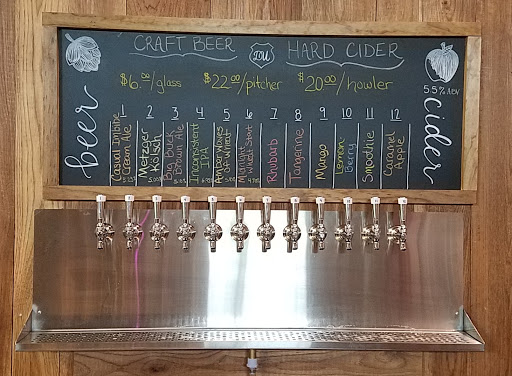 CRAFT BEER IDU HARD CIDER
$6.00/glass $22.00/pitcher $20.00/howler
5.5% ABV
beer
cider
1 2 3 4 5 6 7 8 9 10 11 12
Casual Imbibe
Cream Ale
Metzger
Kölsch
Big Buck
Brown Ale
Inconsistent
IPA
Amber Waves
of Wheat
Midnight
Wheat Stout
Rhubarb
Tangerine
Mango
Lemon
Berry
Smoothie
Caramel
Apple